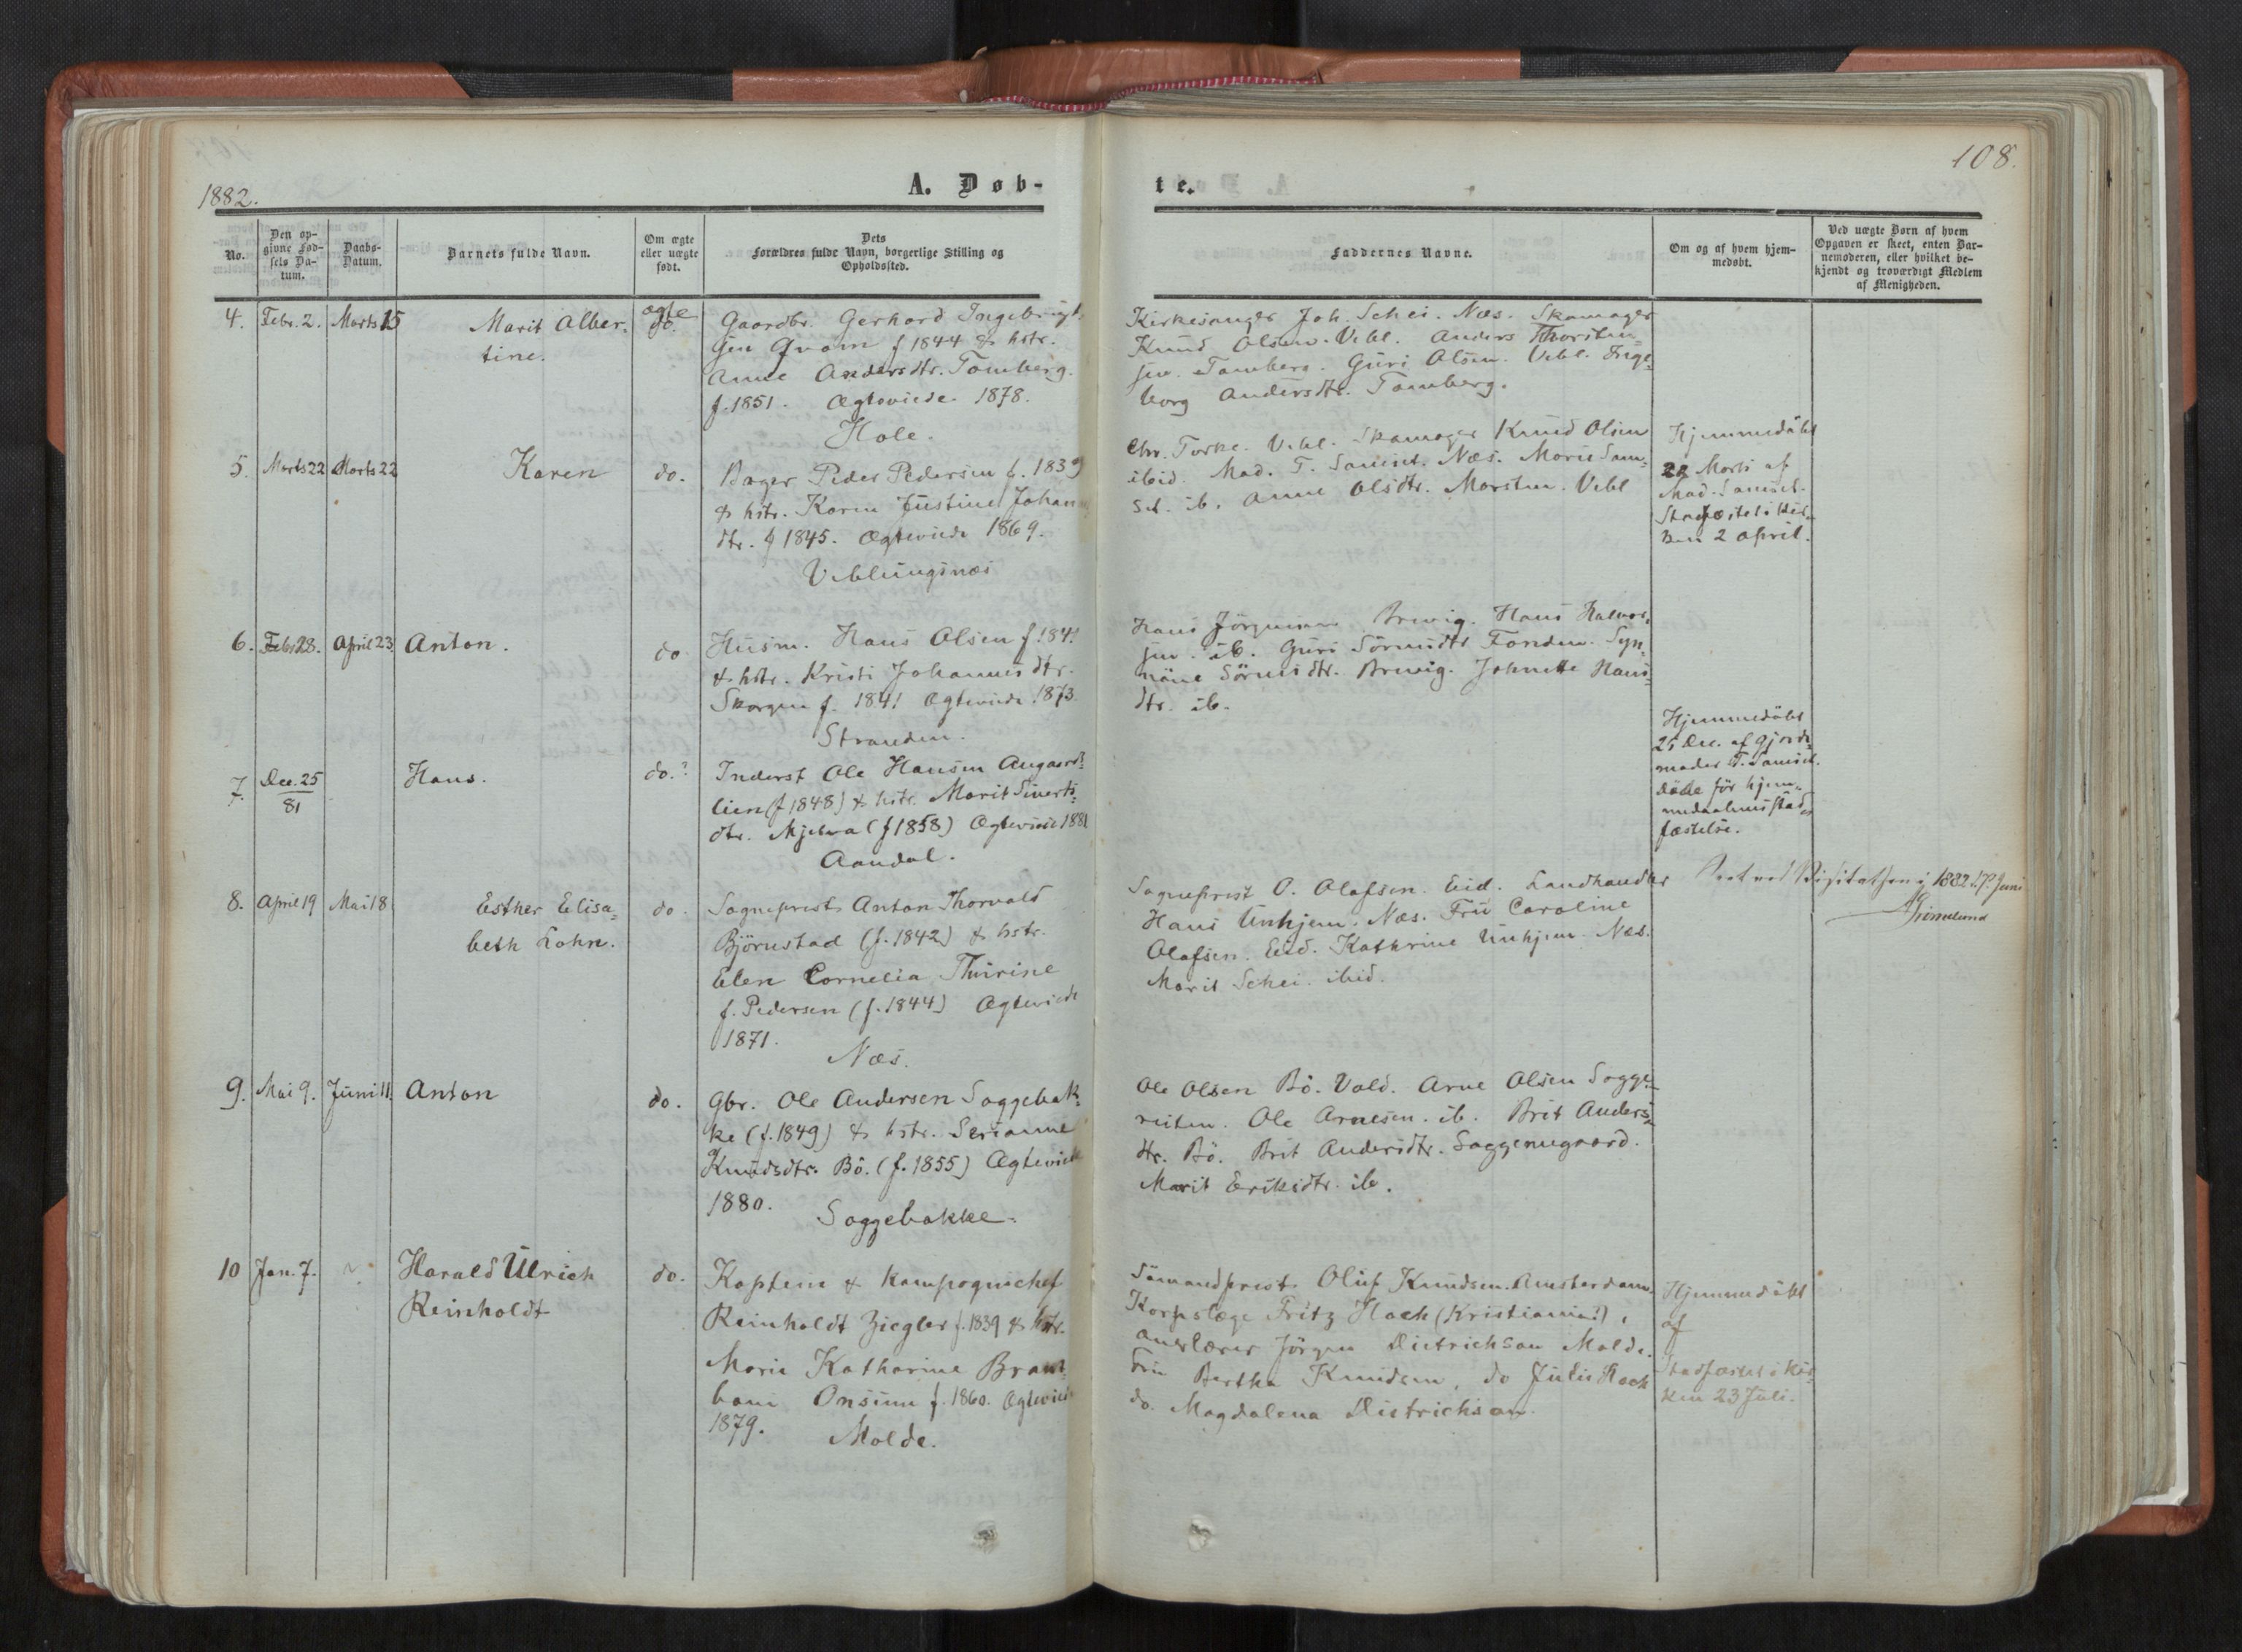 108.
1882.
A. Døb-
te.
No.
Den op-
givne Fød-
sels Da-
tum.
Daabs-
Datum.
Barnets fulde Navn.
Om ægte
eller uægte
født.
Dets
Forældres fulde Navn, borgerlige Stilling og
Opholdssted.
Faddernes Navne.
Om og af hvem hjem-
medøbt.
Ved uægte Børn af hvem
Opgaven er skeet, enten Bar-
nemoderen, eller hvilket be-
kjendt og troværdigt Medlem
af Menigheden.
4.
Febr. 2.
Marts 15
Marit Alber-
tine.
ægte
do.
Gaardbr. Gerhard Ingebrigt-
sen Qvam f 1844 & hstr.
Anne Andersdtr. Tomberg.
f. 1851. Ægteviede 1878.
Hole.
Kirkesanger Joh. Schei. Næs. Skomager
Knud Olsen. Vebl. Anders Thorsten-
sen. Tomberg. Guri Olsen. Vebl. Inge-
borg Andersdtr. Tomberg.
5.
Marts 22
Marts 22
Karen
do.
Bager Peder Pedersen f. 1839
& hstr. Karen Justine Johan
dtr. f 1845. Ægteviede 1869.
Veblungsnæs
Chr. Torske. Vebl. Skomager Knud Olsen
ibid. Mad. T. Samset. Næs. Marie Sam-
set. ib. Anne Olsdtr. Marsten. Vebl
Hjemmedöbt
22 Marts af
Mad. Samset.
Stadfæstet i Kir-
ken 2 April.
6.
Febr 28.
April 23
Anton.
do
Husm. Hans Olsen f. 1841
& hstr. Kristi Johannesdtr.
Skorgen f. 1841 Ægteviede 1873.
Stranden.
Hans Jörgensen Brevig. Hans Halvor-
sen. ib. Guri Sörensdtr Fonden. Syn-
növe Sörensdtr. Brevig. Johnette Hans-
dtr. ib.
7.
Dec. 25
81
Hans.
do.?
Inderst Ole Hansen Aagaards-
lien (f 1848) & hstr. Marit Siverts-
dtr. Mjelva (f 1858) Ægteviede 1881
Aandal.
Hjemmedöbt
25 Dec. af Gjorde-
moder T. Samset.
Döde för hjem-
medaabens stad-
fæstelse.
8.
April 19
Mai 18
Esther Elisa-
beth Lohn.
do.
Sogneprest Anton Thorvald
Björnstad (f. 1842) & hstr.
Elen Cornelia Thurine
f. Pedersen (f. 1844) Ægteviede
1871.
Næs.
Sogneprest O. Olafsen. Eid. Landhandler
Hans Unhjem. Næs. Fru Caroline
Olafsen. Eid. Kathrine Unhjem. Næs.
Marit Schei. ibid.
Seet ved Visitatsen i 1882 d. 7 Juni
Grimelund
9.
Mai 9.
Juni 11.
Anton
do.
Gbr. Ole Andersen Soggebak-
ke (f. 1849) & hstr. Serianne
Knudsdtr. Bö. (f. 1855) Ægteviede
1880.
Soggebakke.
Ole Olsen Bö. Vold. Arne Olsen Sogge-
reiten. Ole Arnesen. ib. Brit Anders-
dtr. Bö. Brit Andersdtr. Soggemegaard.
Marit Eriksdtr. ib.
10
Jan. 7.
Harald Ulrich
Reinholdt
do.
Kaptein & Kompagnichef
Reinholdt Ziegler f. 1839 & hstr.
Marie Katharine
Onsum f. 1860. Ægteviede
1879.
Molde.
Sömandsprest Oluf Knudsen. Amsterdam.
Korpslæge Fritz Hoch (Kristiania?),
Jörgen Dietrichson Molde.
Fru Bertha Knudsen, do Julie Hoch
do. Magdalena Dietrichson.
Hjemmedöbt
af
Stadfæstet i Kir-
ken 23 Juli.